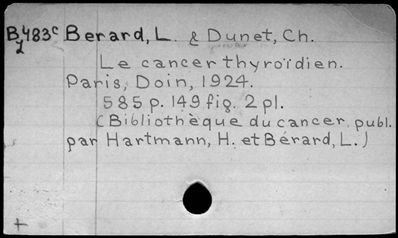 B483c Berard, L. & Dunet, Ch.
1
Le cancer thyroïdien.
Paris, Doin, 1924.
585 p. 149 fig. 2 pl.
(Bibliothèque du cancer, publ.
par Hartmann, H. et Bérard, L.)